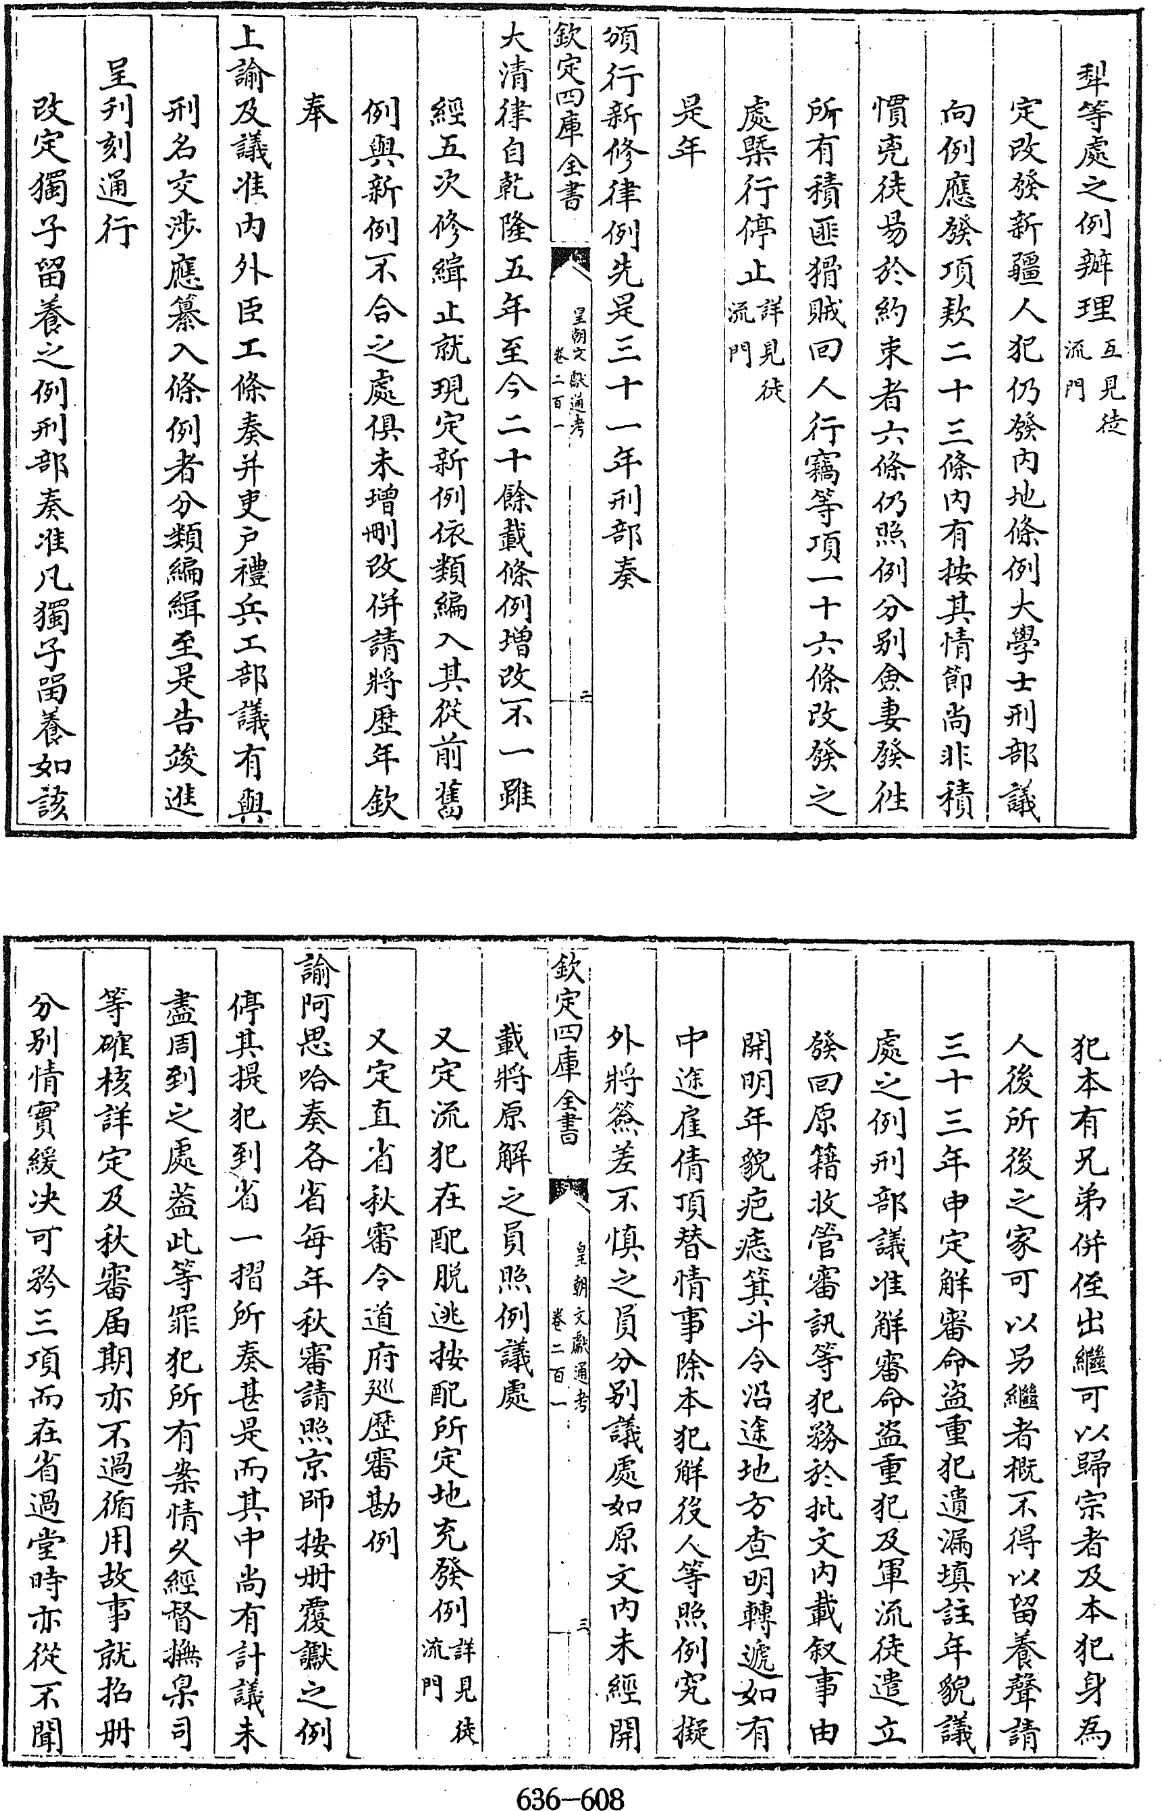 犁等處之例辦理互見徒流門
定改發新疆人犯仍發内地條例大學士刑部議
向例應發項欵二十三條内有按其情節尚非積
慣兇徒易於約束者六條仍照例分别僉妻發徃
所有積匪猾賊回人行竊等項一十六條改發之
處槩行停止詳見徒流門
是年
頒行新修律例先是三十一年刑部奏
欽定四庫全書
皇朝文獻通考
卷二百一
二
大清律自乾隆五年至今二十餘載條例增改不一雖
經五次修緝止就現定新例依類編入其從前舊
例與新例不合之處俱未增刪改併請將歷年欽
奉
上諭及議准内外臣工條奏并吏户禮兵工部議有與
刑名交渉應纂入條例者分類編緝至是告竣進
呈刋刻通行
改定獨子留養之例刑部奏准凡獨子留養如該
犯本有兄弟併侄出繼可以歸宗者及本犯身為
人後所後之家可以另繼者概不得以留養聲請
三十三年申定解審命盗重犯遺漏填註年貌議
處之例刑部議准解審命盗重犯及軍流徒遣立
發回原籍收管審訊等犯務於批文内載叙事由
開明年貌疤痣箕斗令沿途地方查明轉遞如有
中途雇倩頂替情事除本犯解役人等照例究擬
外將僉差不慎之員分别議處如原文内未經開
欽定四庫全書
皇朝文獻通考
卷二百一
三
載將原解之員照例議處
又定流犯在配脱逃按配所定地充發例詳見徒流門
又定直省秋審令道府廵歷審勘例
諭阿思哈奏各省每年秋審請照京師按册覆讞之例
停其提犯到省一摺所奏甚是而其中尚有計議未
盡周到之處葢此等罪犯所有案情久經督撫臬司
等確核詳定及秋審届期亦不過循用故事就招册
分别情實緩決可矜三項而在省過堂時亦從不聞
636-608